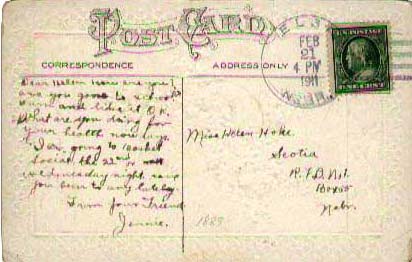 POST CARD
CORRESPONDENCE
ADDRESS ONLY
ELBA
FEB
21
4 PM
1911
NEBR.
U.S. POSTAGE
ONE CENT
Dear Helen How are you?
are you going to school
and like it O.K.
What are you doing for
your health now days.
I am going to basket
Social the 22nd or
wednesday night have
you been to any lately.
From Your Friend
Jennie.
Miss Helen Hoke
Scotia
R.F.D. No 1
Box 55
Nebr.
1889